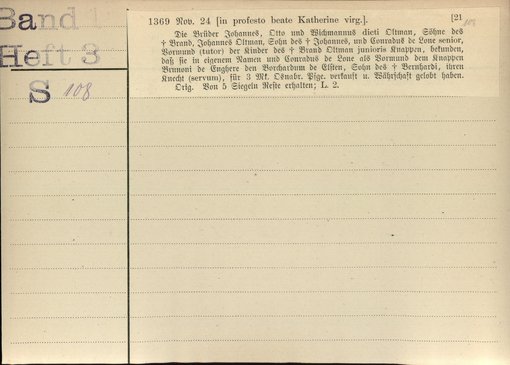 Band 1
Heft 3
S 108
1369 Nov. 24 [in profesto beate Katherine virg.]. [21
108
Die Brüder Johannes, Otto und Wichmannus dicti Oltman, Söhne des
† Brand, Johannes Oltman, Sohn des † Johannes, und Conradus de Lone senior,
Vormund (tutor) der Kinder des † Brand Oltman junioris Knappen, bekunden,
daß sie in eigenem Namen und Conradus de Lone als Vormund dem Knappen
Brunoni de Enghere den Borchardum de Elsten, Sohn des † Bernhardi, ihren
Knecht (servum), für 3 Mk. Osnabr. Pfge. verkauft u. Währschaft gelobt haben.
Orig. Von 5 Siegeln Reste erhalten; L. 2.